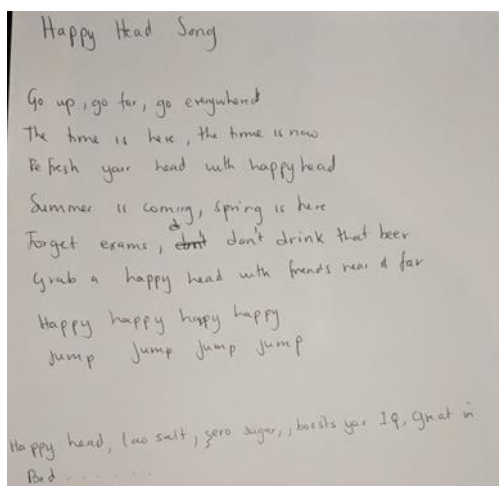 Happy Head Song
Go up, go far, go everywhere
The time is here, the time is now
Refresh your head with happy head
Summer is coming, spring is here
Forget exams, don't drink that beer
Grab a happy head with friends near & far
Happy happy happy happy
Jump Jump Jump Jump
Happy head, low salt, zero sugar, boosts your IQ, great in
Bed.......